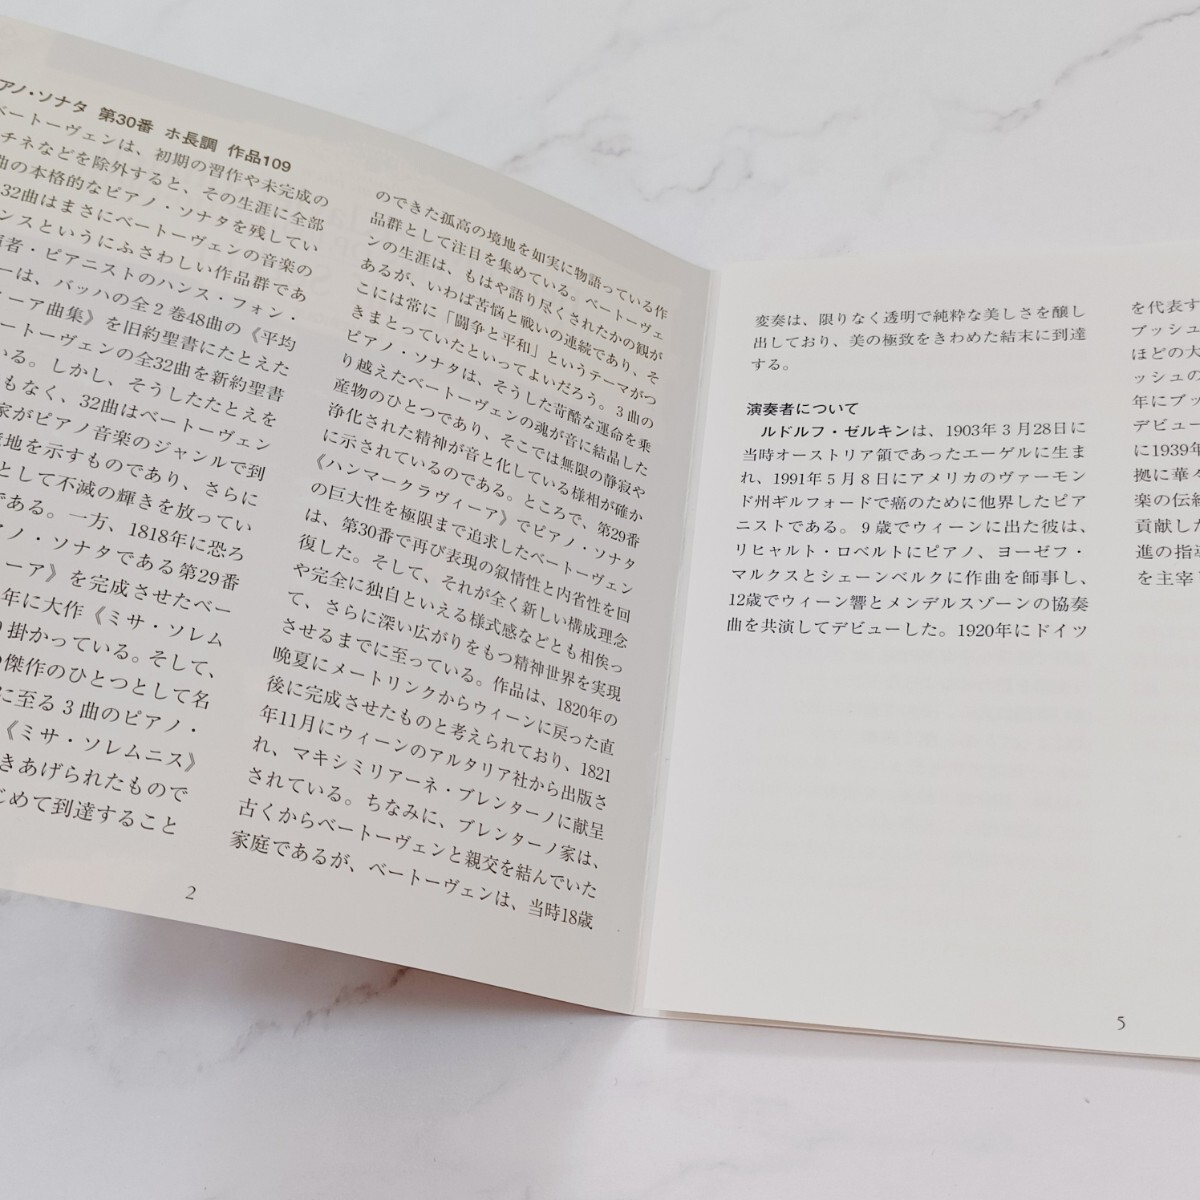 アノ・ソナタ 第30番 ホ長調 作品109
ベートーヴェンは、初期の習作や未完成の
チネなどを除外すると、その生涯に全部
曲の本格的なピアノ・ソナタを残してい
32曲はまさにベートーヴェンの音楽の
ンスというにふさわしい作品群であ
者・ピアニストのハンス・フォン・
ーは、バッハの全2巻48曲の《平均
ィーア曲集》を旧約聖書にたとえた
ートーヴェンの全32曲を新約聖書
いる。しかし、そうしたたとえを
もなく、32曲はベートーヴェン
家がピアノ音楽のジャンルで到
地を示すものであり、さらに
として不滅の輝きを放ってい
である。一方、1818年に恐ろ
アノ・ソナタである第29番
ーア》を完成させたベー
年に大作《ミサ・ソレム
掛かっている。そして、
傑作のひとつとして名
に至る3曲のピアノ・
《ミサ・ソレムニス》
きあげられたもので
じめて到達すること
2
のできた孤高の境地を如実に物語っている作
品群として注目を集めている。ベートーヴェ
ンの生涯は、もはや語り尽くされたかの観が
あるが、いわば苦悩と戦いの連続であり、そ
こには常に「闘争と平和」というテーマがつ
きまとっていたといってよいだろう。3曲の
ピアノ・ソナタは、そうした苛酷な運命を乗
り越えたベートーヴェンの魂が音に結晶した
産物のひとつであり、そこでは無限の静寂や
浄化された精神が音と化している様相が確か
に示されているのである。ところで、第29番
《ハンマークラヴィーア》でピアノ・ソナタ
の巨大性を極限まで追求したベートーヴェン
は、第30番で再び表現の叙情性と内省性を回
復した。そして、それが全く新しい構成理念
や完全に独自といえる様式感などとも相俟っ
て、さらに深い広がりをもつ精神世界を実現
させるまでに至っている。作品は、1820年の
晩夏にメートリンクからウィーンに戻った直
後に完成させたものと考えられており、1821
年11月にウィーンのアルタリア社から出版さ
れ、マキシミリアーネ・ブレンターノに献呈
されている。ちなみに、ブレンターノ家は、
古くからベートーヴェンと親交を結んでいた
家庭であるが、ベートーヴェンは、当時18歳
変奏は、限りなく透明で純粋な美しさを醸し
出しており、美の極致をきわめた結末に到達
する。
演奏者について
ルドルフ・ゼルキンは、1903年3月28日に
当時オーストリア領であったエーゲルに生ま
れ、1991年5月8日にアメリカのヴァーモン
ド州ギルフォードで癌のために他界したピア
ニストである。9歳でウィーンに出た彼は、
リヒャルト・ロベルトにピアノ、ヨーゼフ・
マルクスとシェーンベルクに作曲を師事し、
12歳でウィーン響とメンデルスゾーンの協奏
曲を共演してデビューした。1920年にドイツ
を代表す
ブッシュ
ほどの大
ッシュの
年にブッ
デビュー
に1939年
拠に華々
楽の伝統
貢献した
進の指導
を主宰
5